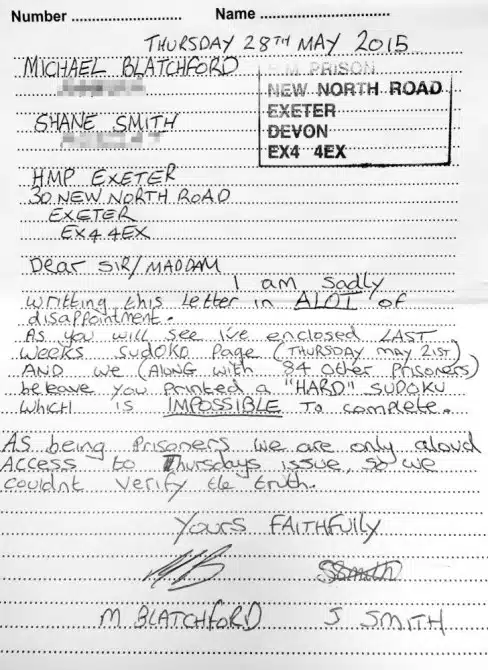 Number ............................ Name .................................
THURSDAY 28TH MAY 2015
MICHAEL BLATCHFORD
H.M PRISON
NEW NORTH ROAD
EXETER
DEVON
EX4 4EX
SHANE SMITH
HMP EXETER
30 NEW NORTH ROAD
EXETER
EX4 4EX
Dear SIR/MADDAM
I am sadly
writting this letter in ALOT of
disappointment.
As you will see I've enclosed LAST
weeks SUDOKO Page (THURSDAY MAY 21ST)
AND we (ALONG WITH 84 other Prisoners)
beleave you Printed a "HARD" SUDOKU
which is IMPOSSIBLE To complete.
As being Prisoners we are only aloud
Access to Thursdays issue, so we
couldnt verify the truth.
Yours FAITHFUlly
SSmith
M BLATCHFORD S SMITH